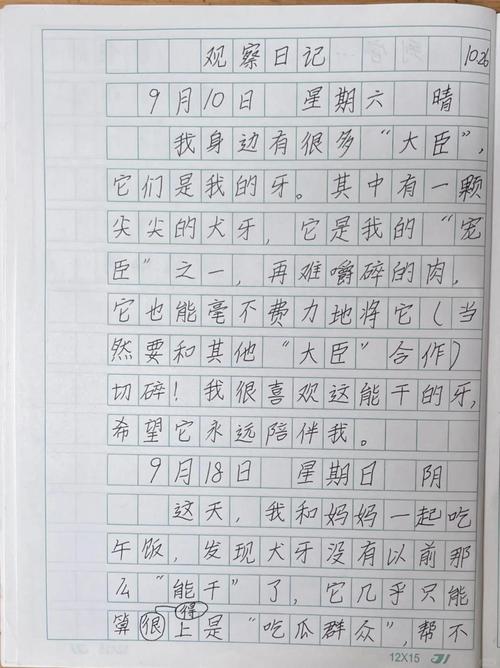 观察日记 10.26
9月10日 星期六 晴
我身边有很多“大臣”，
它们是我的牙。其中有一颗
尖尖的犬牙，它是我的“宠
臣”之一，再难嚼碎的肉，
它也能毫不费力地将它（当
然要和其他“大臣”合作）
切碎！我很喜欢这能干的牙，
希望它永远陪伴我。
9月18日 星期日 阴
这天，我和妈妈一起吃
午饭，发现犬牙没有以前那
么“能干”了，它几乎只能
得
算很上是“吃瓜群众”，帮不
12X15